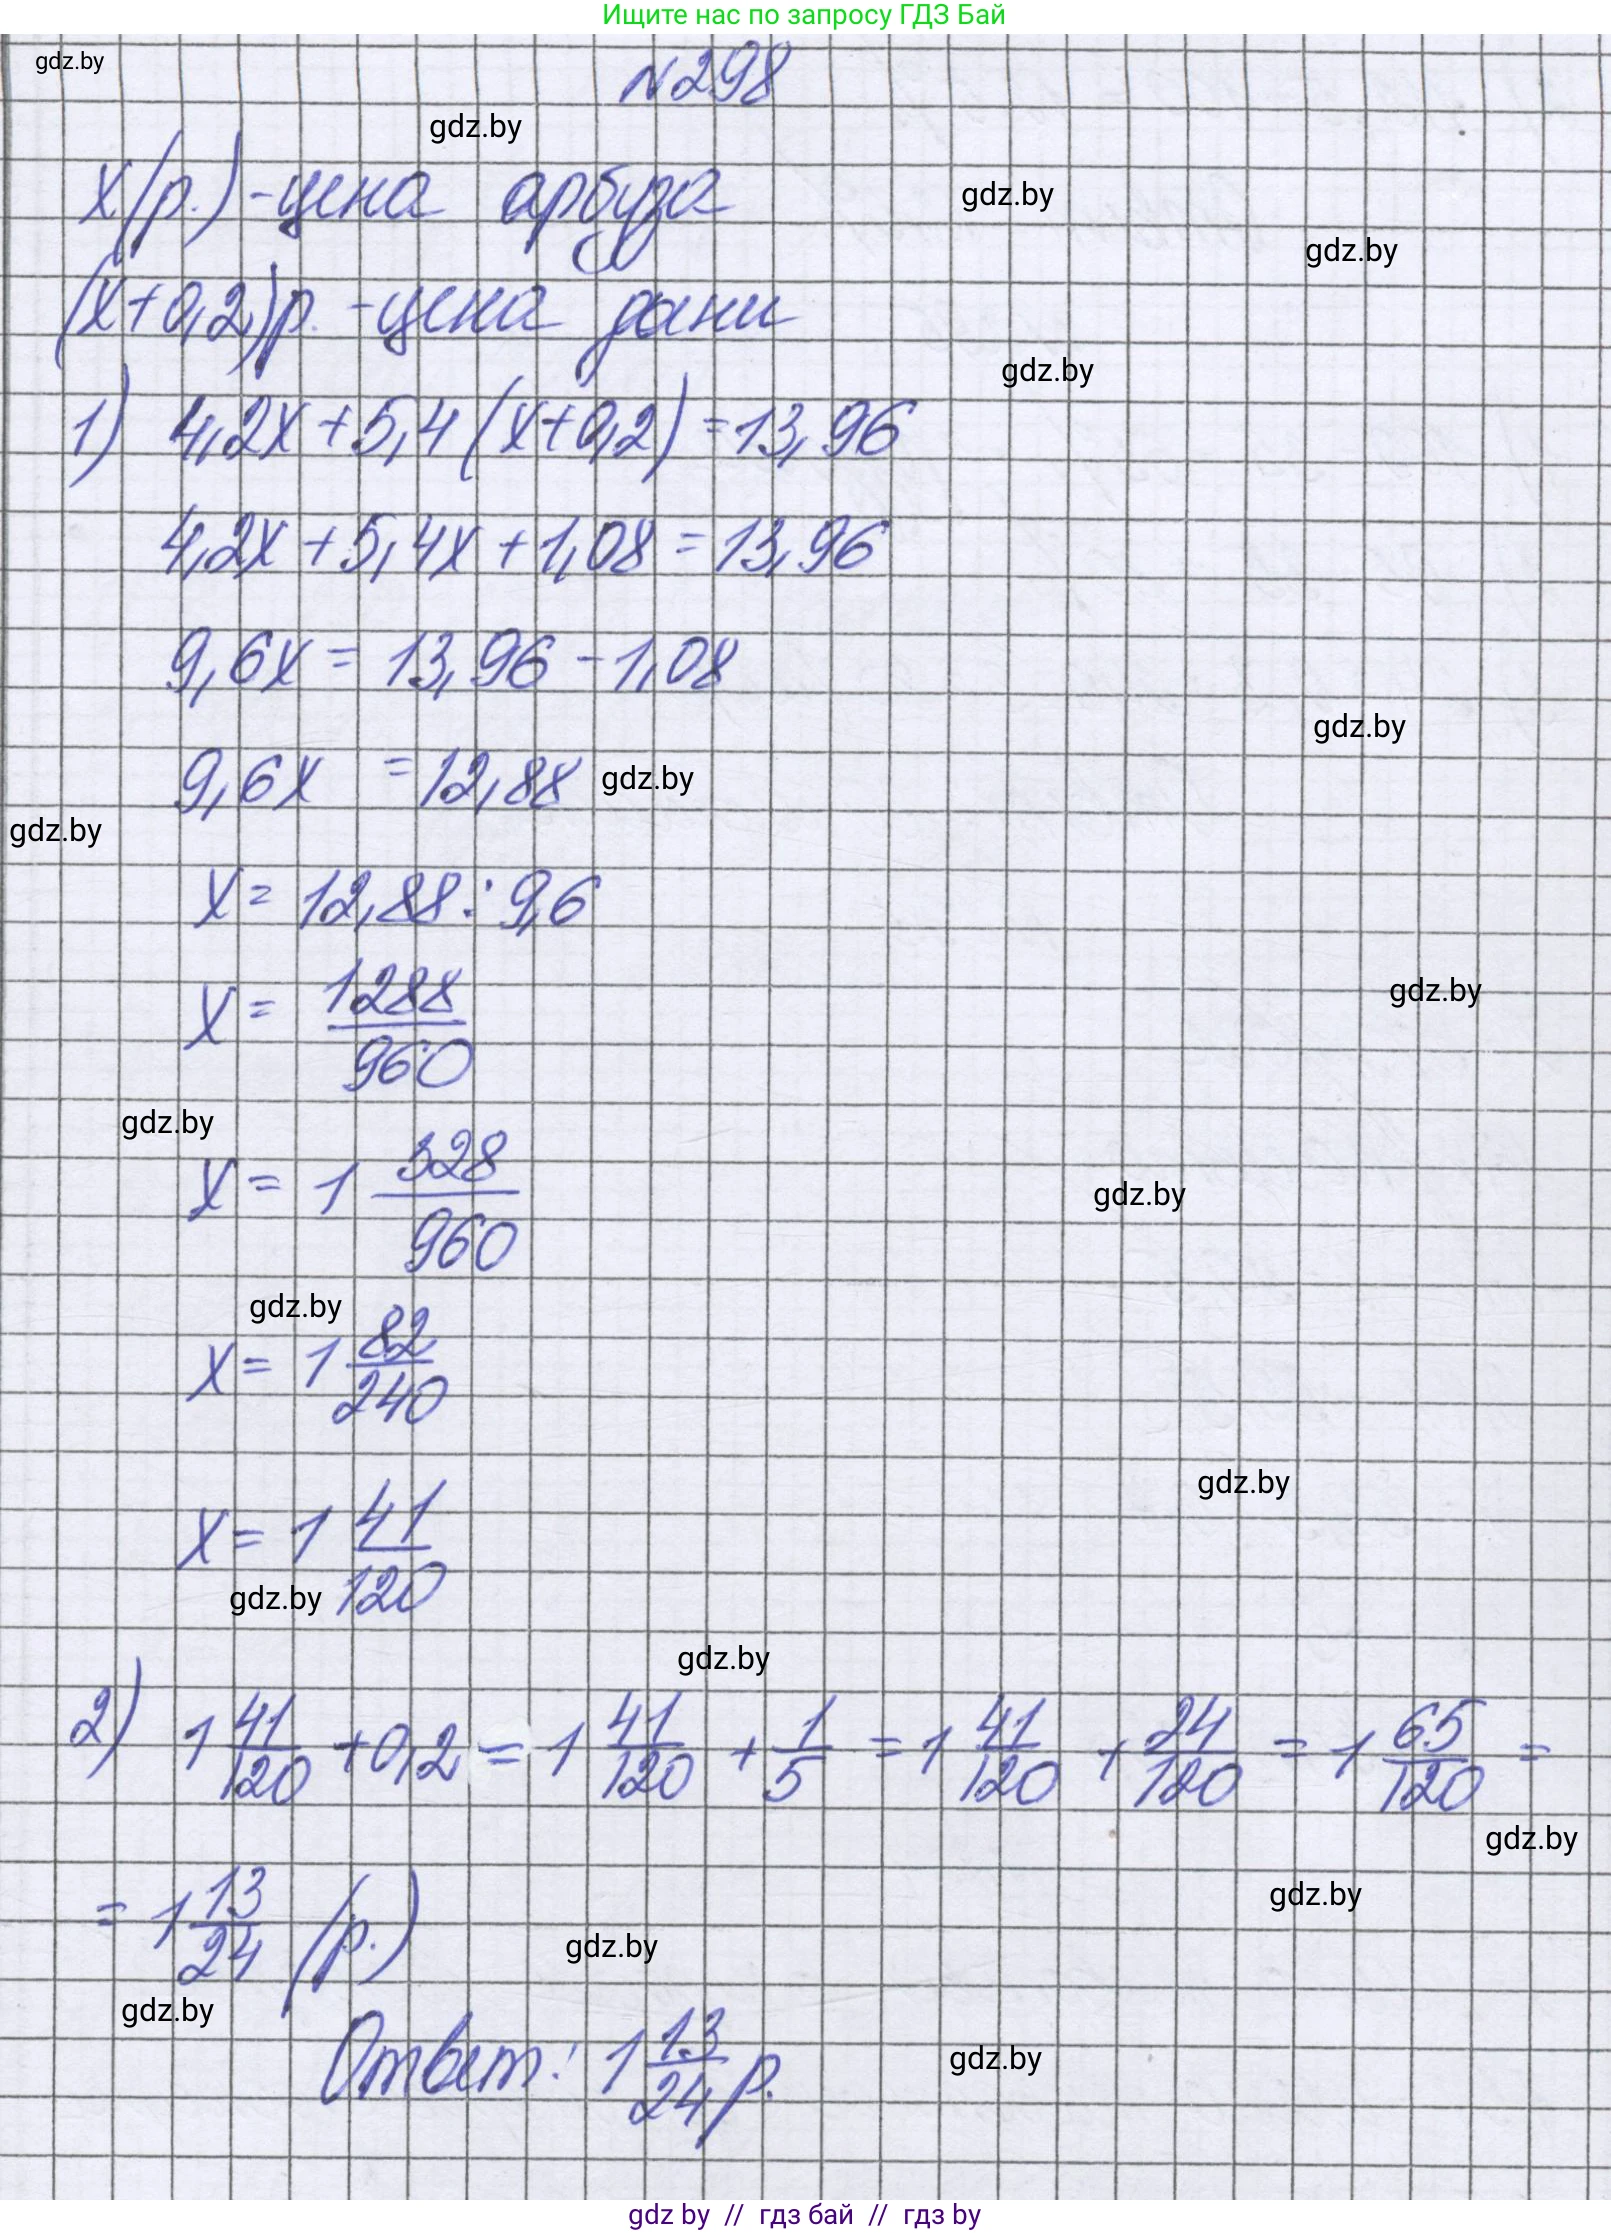 Ищите нас по запросу ГДЗ Бай
gdz.by
N298
gdz.by
x(р.) - цена арбуза
gdz.by
gdz.by
(x+0,2)р. - цена дыни
gdz.by
1) 4,2x+5,4(x+0,2)=13,96
4,2x+5,4x+1,08=13,96
9,6x = 13,96-1,08
gdz.by
9,6x = 12,88
gdz.by
gdz.by
x= 12,88:9,6
x = 1288/960
gdz.by
gdz.by
x = 1 328/960
gdz.by
gdz.by
x = 1 82/240
gdz.by
x = 1 41/120
gdz.by
gdz.by
2) 1 41/120 + 0,2 = 1 41/120 + 1/5 = 1 41/120 + 24/120 = 1 65/120 =
gdz.by
= 1 13/24 (р.)
gdz.by
gdz.by
gdz.by
Ответ: 1 13/24 р.
gdz.by
gdz by // гдз бай // гдз by